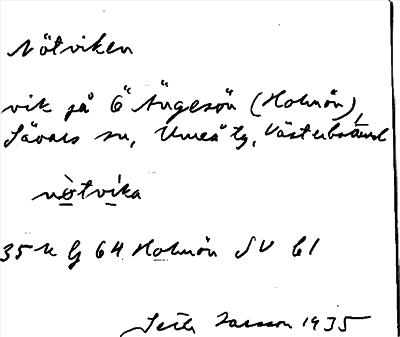 Nötviken
vik på Ö Ängesön (Holmön),
Sävars sn, Umeå tg, Västerbotten
nò̱tvi̱ka
35 k G 64 Holmön SV b1
Larsson 1935